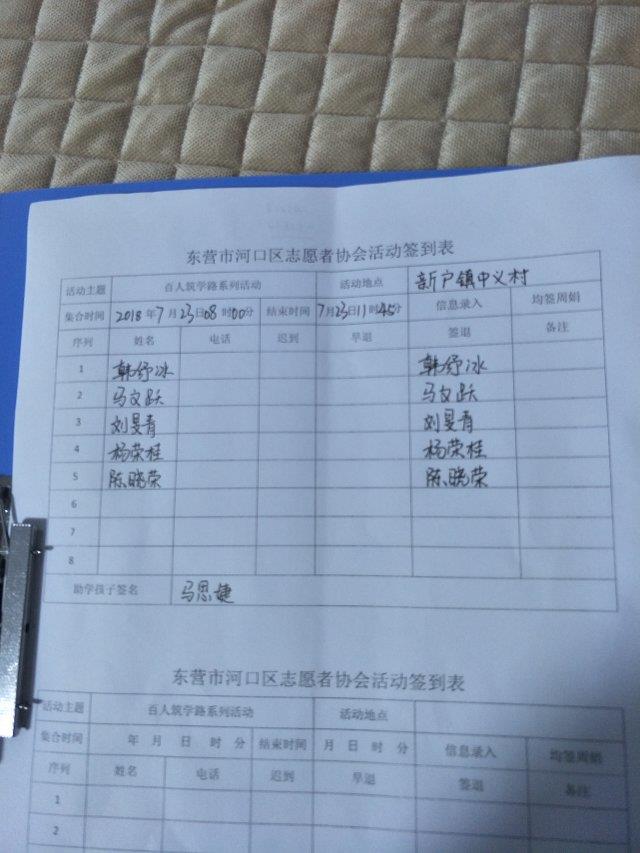 东营市河口区志愿者协会活动签到表
活动主题 百人筑学路系列活动 活动地点 新户镇中义村
集合时间 2018年7月23日08时00分 结束时间 7月23日11时45分 信息录入 均签周娟
序列 姓名 电话 迟到 早退 签退 备注
1 韩纾冰 韩纾冰
2 马文跃 马文跃
3 刘旻青 刘旻青
4 杨荣桂 杨荣桂
5 陈晓荣 陈晓荣
6
7
8
助学孩子签名 马思婕
东营市河口区志愿者协会活动签到表
活动主题 百人筑学路系列活动 活动地点
集合时间 年 月 日 时 分 结束时间 月 日 时 分 信息录入 均签周娟
序列 姓名 电话 迟到 早退 签退 备注
1
2